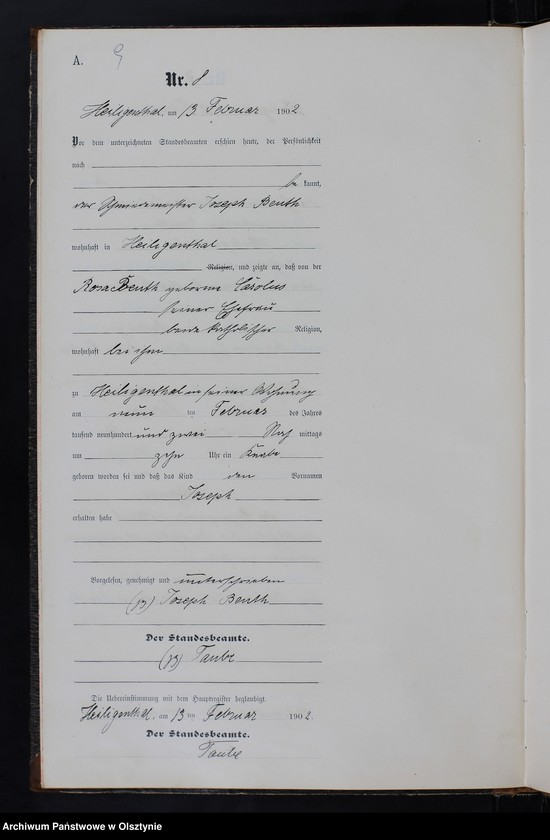 A. 9
Nr. 8
Heiligenthal, am 13 Februar 1902
Vor dem unterzeichneten Standesbeamten erschien heute, der Persönlichkeit
nach
be kannt,
der Schmiedemeister Joseph Benth
wohnhaft in Heiligenthal
Religion, und zeigte an, daß von der
Rosa Benth geborene Carolus
seiner Ehefrau
beide katholischer Religion,
wohnhaft bei ihm
zu Heiligenthal in seiner Wohnung
am neun ten Februar des Jahres
tausend neunhundert und zwei Nach mittags
um zehn Uhr ein Knabe
geboren worden sei und daß das Kind den Vornamen
Joseph
erhalten habe
Vorgelesen, genehmigt und unterschrieben
Joseph Benth
Der Standesbeamte.
Taube
Die Uebereinstimmung mit dem Hauptregister beglaubigt
Heiligenthal, am 13 ten Februar 1902.
Der Standesbeamte.
Taube
Archiwum Państwowe w Olsztynie